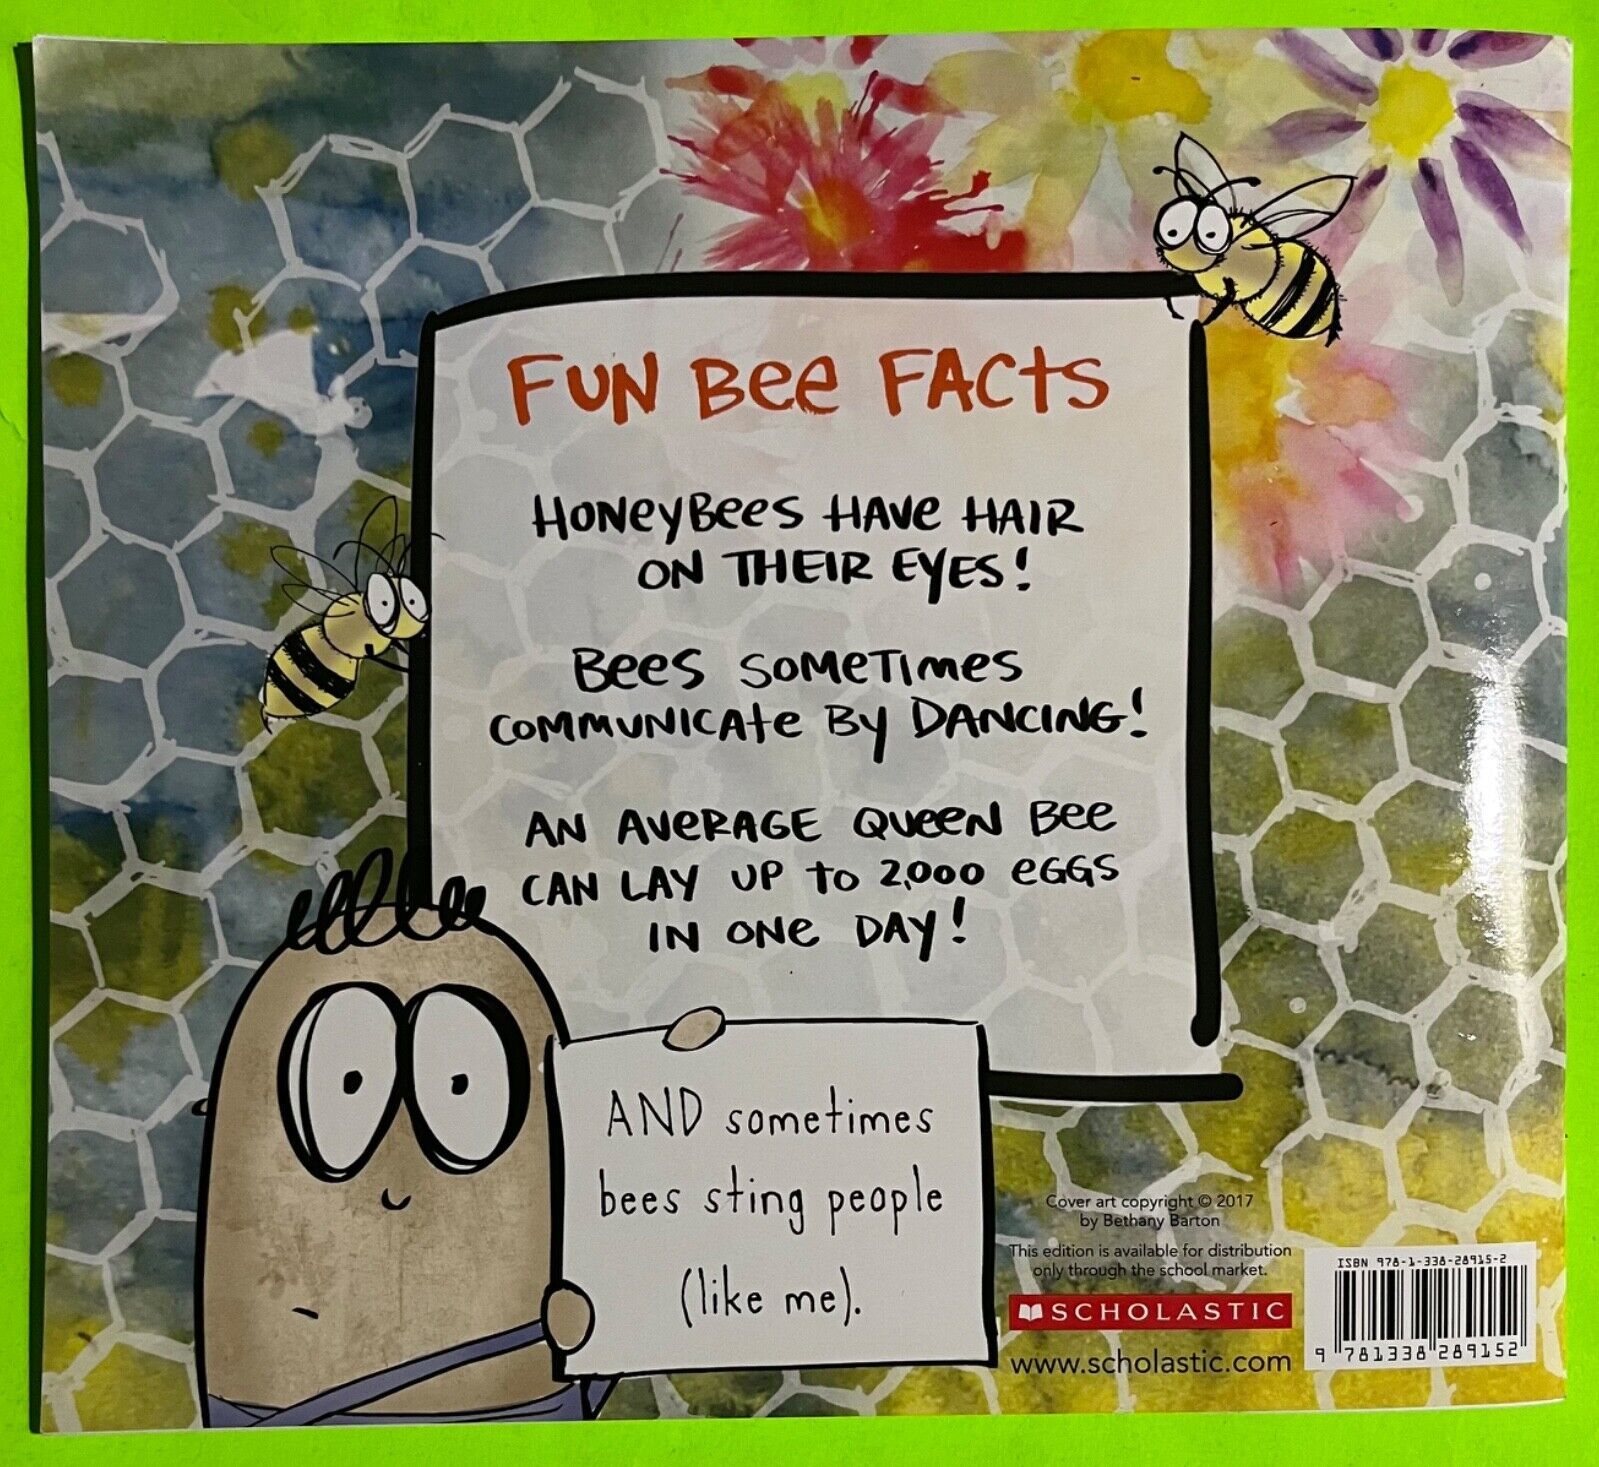 FUN Bee FACts
HONeyBees HAVe HAIR
ON THEIR EYES!
Bees SOMeTImes
COMMUNICAte By DANCING!
AN AVeRAGE QUeeN Bee
CAN LAY UP to 2,000 eGGS
IN ONe DAY!
AND sometimes
bees sting people
(like me).
Cover art copyright © 2017
by Bethany Barton
This edition is available for distribution
only through the school market.
SCHOLASTIC
www.scholastic.com
ISBN 978-1-338-28915-2
9 781338 289152